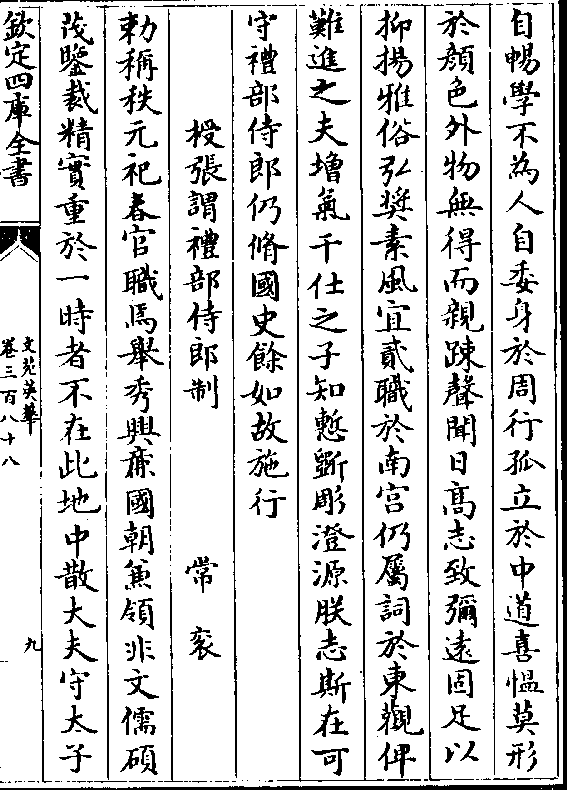 自暢學不為人自委身於周行孤立於中道喜慍莫形
於顔色外物無得而親踈聲聞日髙志致彌逺固足以
抑揚雅俗弘奬素風宜貳職於南宫仍屬詞於東觀俾
難進之夫増氣干仕之子知慙斵彫澄源朕志斯在可
守禮部侍郎仍脩國史餘如故施行
授張謂禮部侍郎制 常衮
勅稱秩元祀春官職焉舉秀興亷國朝兼領非文儒碩
茂鑒裁精實重於一時者不在此地中散大夫守太子
欽定四庫全書
文苑英華
卷三百八十八
九